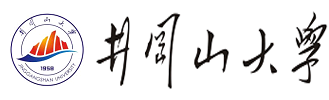 井冈山大学
1958
JINGGANGSHAN UNIVERSITY
井岡山大學